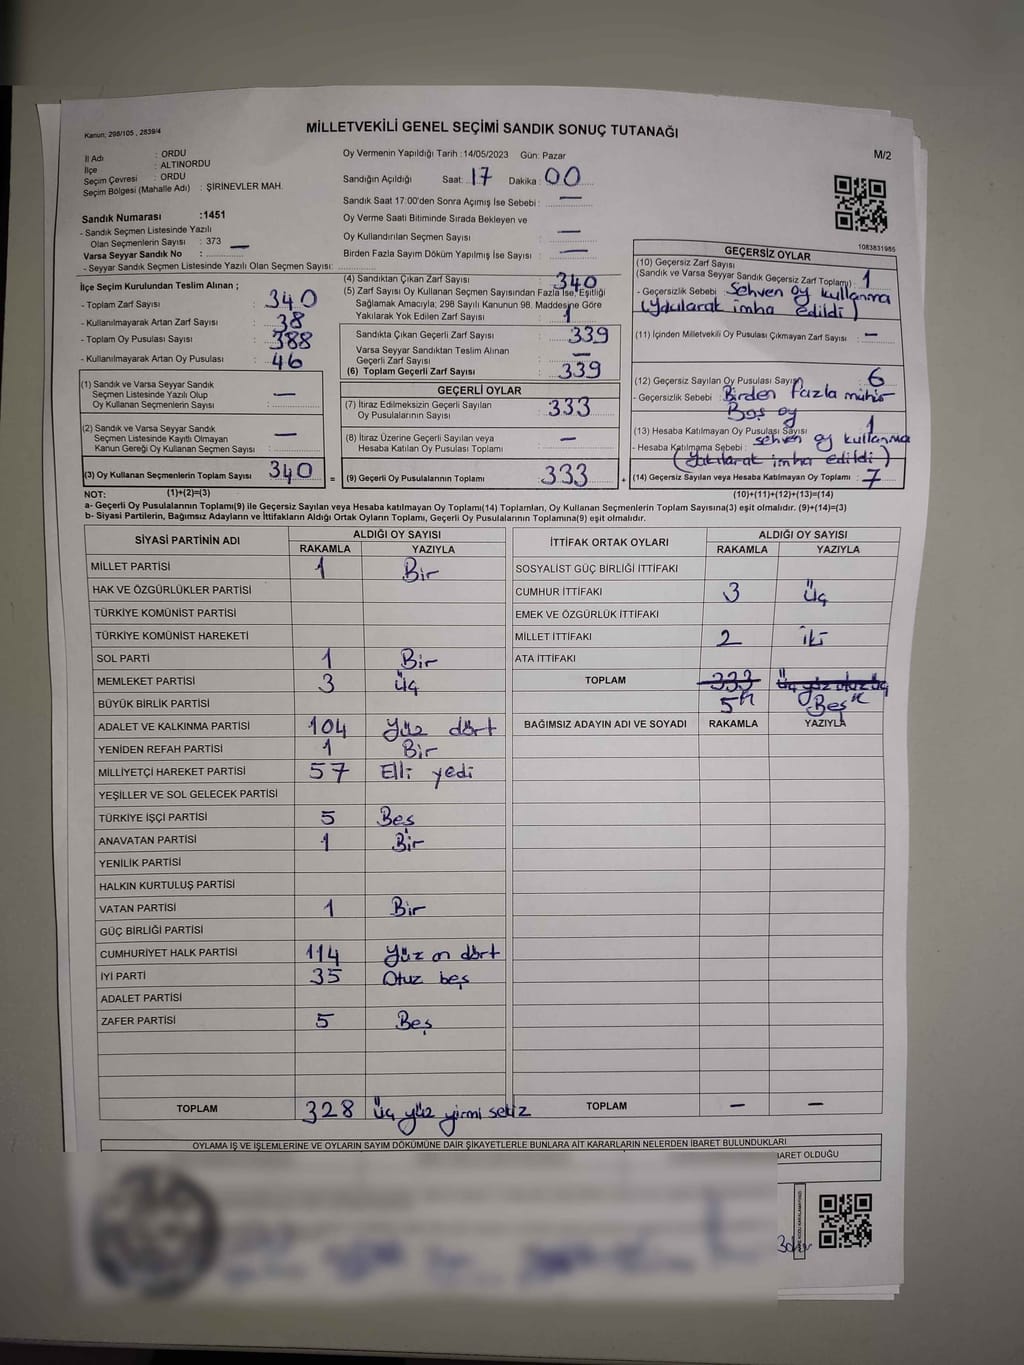 Kanun; 298/105 , 2839/4
MİLLETVEKİLİ GENEL SEÇİMİ SANDIK SONUÇ TUTANAĞI
M/2
İl Adı : ORDU
İlçe : ALTINORDU
Seçim Çevresi : ORDU
Seçim Bölgesi (Mahalle Adı) : ŞİRİNEVLER MAH.
Sandık Numarası :1451
- Sandık Seçmen Listesinde Yazılı
Olan Seçmenlerin Sayısı : 373 —
Varsa Seyyar Sandık No :
- Seyyar Sandık Seçmen Listesinde Yazılı Olan Seçmen Sayısı:
Oy Vermenin Yapıldığı Tarih :14/05/2023 Gün: Pazar
Sandığın Açıldığı Saat: 17 Dakika : 00
Sandık Saat 17:00'den Sonra Açımış İse Sebebi : —
Oy Verme Saati Bitiminde Sırada Bekleyen ve
Oy Kullandırılan Seçmen Sayısı : —
Birden Fazla Sayım Döküm Yapılmış İse Sayısı : —
1083831985
İlçe Seçim Kurulundan Teslim Alınan ;
- Toplam Zarf Sayısı : 340
- Kullanılmayarak Artan Zarf Sayısı : 38
- Toplam Oy Pusulası Sayısı : 388
- Kullanılmayarak Artan Oy Pusulası : 46
(1) Sandık ve Varsa Seyyar Sandık
Seçmen Listesinde Yazılı Olup
Oy Kullanan Seçmenlerin Sayısı : —
(2) Sandık ve Varsa Seyyar Sandık
Seçmen Listesinde Kayıtlı Olmayan
Kanun Gereği Oy Kullanan Seçmen Sayısı : —
(3) Oy Kullanan Seçmenlerin Toplam Sayısı : 340
(4) Sandıktan Çıkan Zarf Sayısı : 340
(5) Zarf Sayısı Oy Kullanan Seçmen Sayısından Fazla İse, Eşitliği
Sağlamak Amacıyla, 298 Sayılı Kanunun 98. Maddesine Göre
Yakılarak Yok Edilen Zarf Sayısı : 1
Sandıkta Çıkan Geçerli Zarf Sayısı : 339
Varsa Seyyar Sandıktan Teslim Alınan
Geçerli Zarf Sayısı : —
(6) Toplam Geçerli Zarf Sayısı : 339
GEÇERLİ OYLAR
(7) İtiraz Edilmeksizin Geçerli Sayılan
Oy Pusulalarının Sayısı : 333
(8) İtiraz Üzerine Geçerli Sayılan veya
Hesaba Katılan Oy Pusulası Toplamı : —
= (9) Geçerli Oy Pusulalarının Toplamı : 333 +
GEÇERSİZ OYLAR
(10) Geçersiz Zarf Sayısı
(Sandık ve Varsa Seyyar Sandık Geçersiz Zarf Toplamı) : 1
- Geçersizlik Sebebi : Sehven oy kullanma
(Yakılarak imha edildi)
(11) İçinden Milletvekili Oy Pusulası Çıkmayan Zarf Sayısı : —
(12) Geçersiz Sayılan Oy Pusulası Sayısı : 6
- Geçersizlik Sebebi : Birden fazla mühür
Boş oy
(13) Hesaba Katılmayan Oy Pusulası Sayısı : 1
- Hesaba Katılmama Sebebi : sehven oy kullanma
(Yakılarak imha edildi)
(14) Geçersiz Sayılan veya Hesaba Katılmayan Oy Toplamı : 7
NOT: (1)+(2)=(3) (10)+(11)+(12)+(13)=(14)
a- Geçerli Oy Pusulalarının Toplamı(9) ile Geçersiz Sayılan veya Hesaba katılmayan Oy Toplamı(14) Toplamları, Oy Kullanan Seçmenlerin Toplam Sayısına(3) eşit olmalıdır. (9)+(14)=(3)
b- Siyasi Partilerin, Bağımsız Adayların ve İttifakların Aldığı Ortak Oyların Toplamı, Geçerli Oy Pusulalarının Toplamına(9) eşit olmalıdır.
SİYASİ PARTİNİN ADI ALDIĞI OY SAYISI
RAKAMLA YAZIYLA
MİLLET PARTİSİ 1 Bir
HAK VE ÖZGÜRLÜKLER PARTİSİ
TÜRKİYE KOMÜNİST PARTİSİ
TÜRKİYE KOMÜNİST HAREKETİ
SOL PARTİ 1 Bir
MEMLEKET PARTİSİ 3 Üç
BÜYÜK BİRLİK PARTİSİ
ADALET VE KALKINMA PARTİSİ 104 Yüz dört
YENİDEN REFAH PARTİSİ 1 Bir
MİLLİYETÇİ HAREKET PARTİSİ 57 Elli yedi
YEŞİLLER VE SOL GELECEK PARTİSİ
TÜRKİYE İŞÇİ PARTİSİ 5 Beş
ANAVATAN PARTİSİ 1 Bir
YENİLİK PARTİSİ
HALKIN KURTULUŞ PARTİSİ
VATAN PARTİSİ 1 Bir
GÜÇ BİRLİĞİ PARTİSİ
CUMHURİYET HALK PARTİSİ 114 Yüz on dört
İYİ PARTİ 35 Otuz beş
ADALET PARTİSİ
ZAFER PARTİSİ 5 Beş
TOPLAM 328 Üç yüz yirmi sekiz
İTTİFAK ORTAK OYLARI ALDIĞI OY SAYISI
RAKAMLA YAZIYLA
SOSYALİST GÜÇ BİRLİĞİ İTTİFAKI
CUMHUR İTTİFAKI 3 Üç
EMEK VE ÖZGÜRLÜK İTTİFAKI
MİLLET İTTİFAKI 2 İki
ATA İTTİFAKI
TOPLAM 333 Üç yüz otuz üç
5 Beş
BAĞIMSIZ ADAYIN ADI VE SOYADI RAKAMLA YAZIYLA
TOPLAM — —
OYLAMA İŞ VE İŞLEMLERİNE VE OYLARIN SAYIM DÖKÜMÜNE DAİR ŞİKAYETLERLE BUNLARA AİT KARARLARIN NELERDEN İBARET BULUNDUKLARI
BARET OLDUĞU